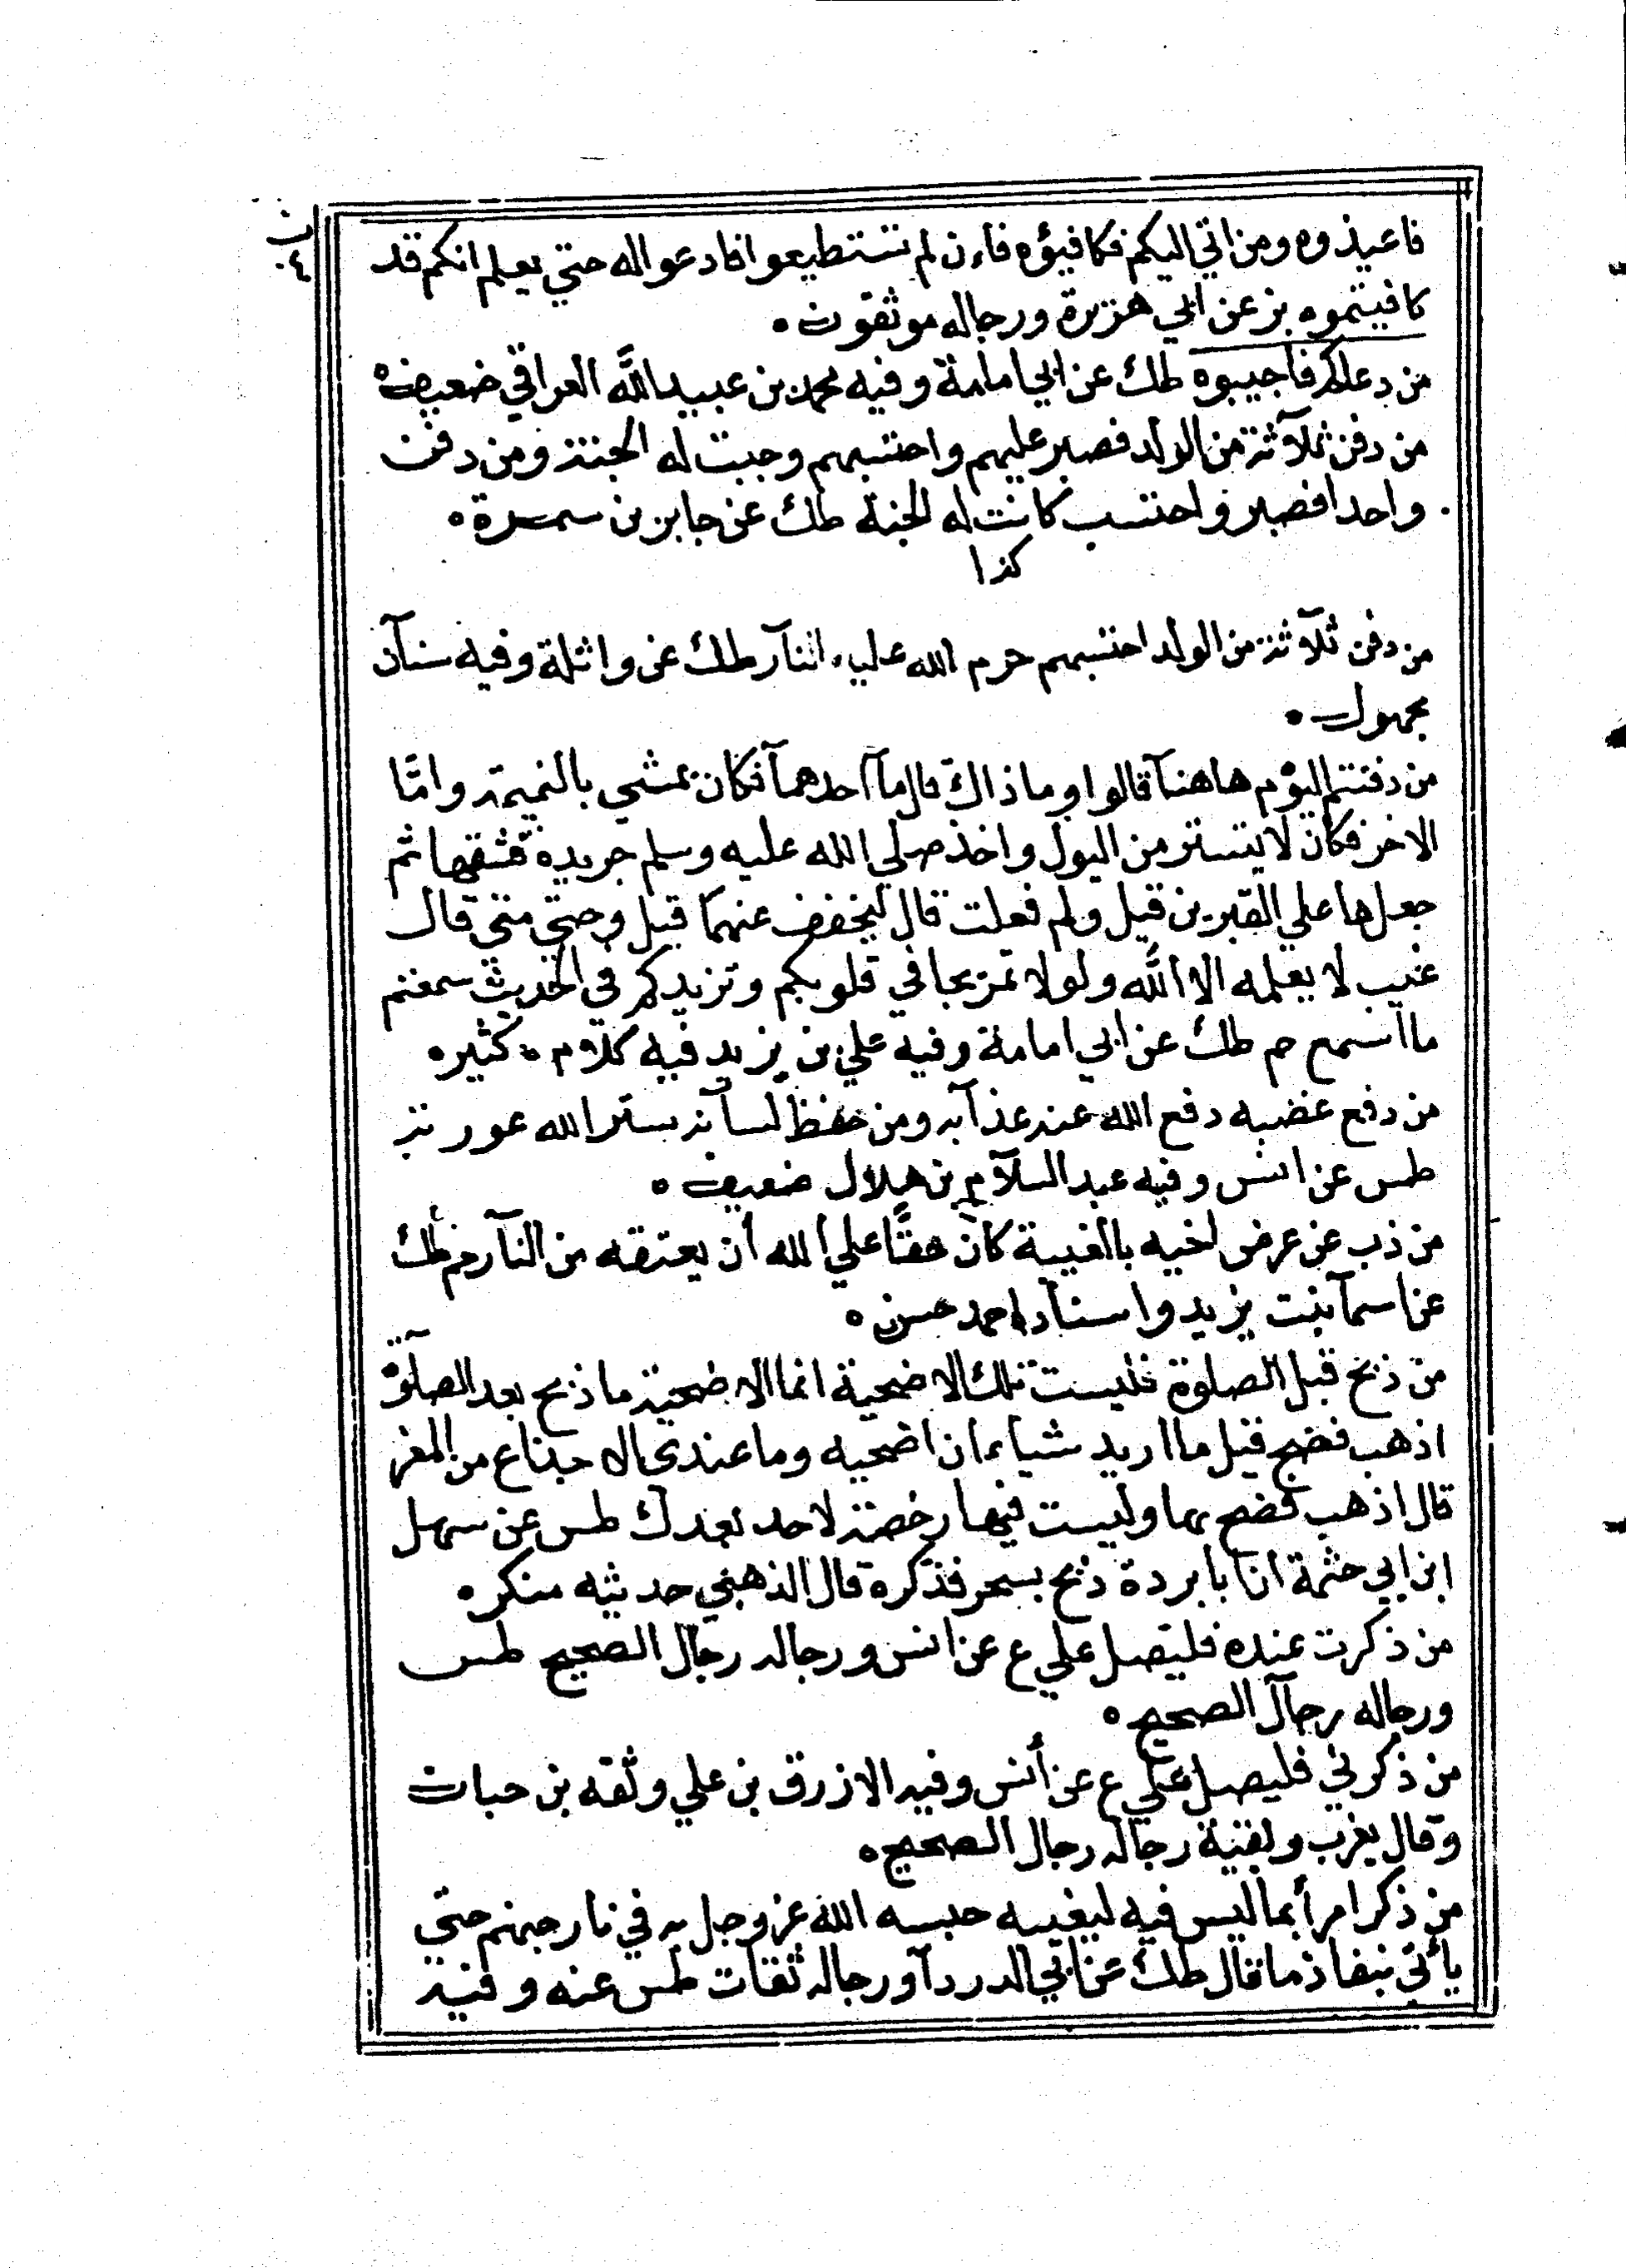 فاعيذوه ومن اتي اليكم فكافيؤه فاءن لم تستطيعوا فادعواله حتي يعلم انكم قد
كافيتموه بز عن ابي هزيرة ورجاله موثقون ه
من دعاكم فاجيبوه طك عن ابي امامة وفيه محمد بن عبيد الله العراقي ضعيف ه
من دفن ثلآثة من الولد فصبر عليهم واحتسبهم وجبت له الجنة ومن دفن
واحدا فصبر واحتسب كانت له الجنة طك عن جابر بن سمرة ه
كذا
من دفن ثلآثة من الولد احتسبهم حرم الله عليه النآر طك عن واثلة وفيه سنآن
مجهول ه
من دفنتم اليؤم هاهنآ قالوا وما ذاك قال مآ احدهمآ فكان يمشي بالنميمة وامّا
الاخر فكان لا يتستر من البول واخذ صلي الله عليه وسلم جريدة فشقها ثم
جعلها علي القبرين قيل ولم فعلت قال ليخفف عنهمآ قيل وحتي متي قال
غيب لا يعلمه الا الله ولولا تمزيجا في قلوبكم وتزيدكم في الحديث سمعتم
ما اسمع حم طك عن ابي امامة وفيه علي بن يزيد فيه كلام كثير ه
من دفع غضبه دفع الله عنه عذآبه ومن حفظ لسآنه ستر الله عورته
طس عن انس وفيه عبد السلآم بن هلال ضعيف ه
من ذب عن عرض اخيه بالغيبة كآن حقًّا علي الله أن يعتقه من النآر حم طك
عن اسمآ بنت يزيد واسنآد احمد حسن ه
من ذبح قبل الصلوة فليست تلك الاضحية انما الاضحية ما ذبح بعد الصلوة
اذهب فضح قيل ما اريد شياء ان اضحيه وما عندى الا جذاع من المغز
قال اذهب فضح بها وليست فيها رخصة لاحد بعدك طس عن سهل
ابن ابي حثمة ان ابا بردة ذبح بسحر فذكره قال الذهبي حديثه منكر ه
من ذكرت عنده فليصل علي ع عن انس ورجاله رجآل الصحيح طس
ورجاله رجآل الصحيح ه
من ذكرني فليصل علي ع عن أنس وفيه الازرق بن علي وثقه بن حبان
وقال يغرب وبقية رجاله رجال الصحيح ه
من ذكر امرأ بما ليس فيه ليغيبه حبسه الله عز وجل به في نار جهنم حتي
يأتي بنفاذ ما قال طك عن ابي الدردآ ورجاله ثقات طس عنه وفيه